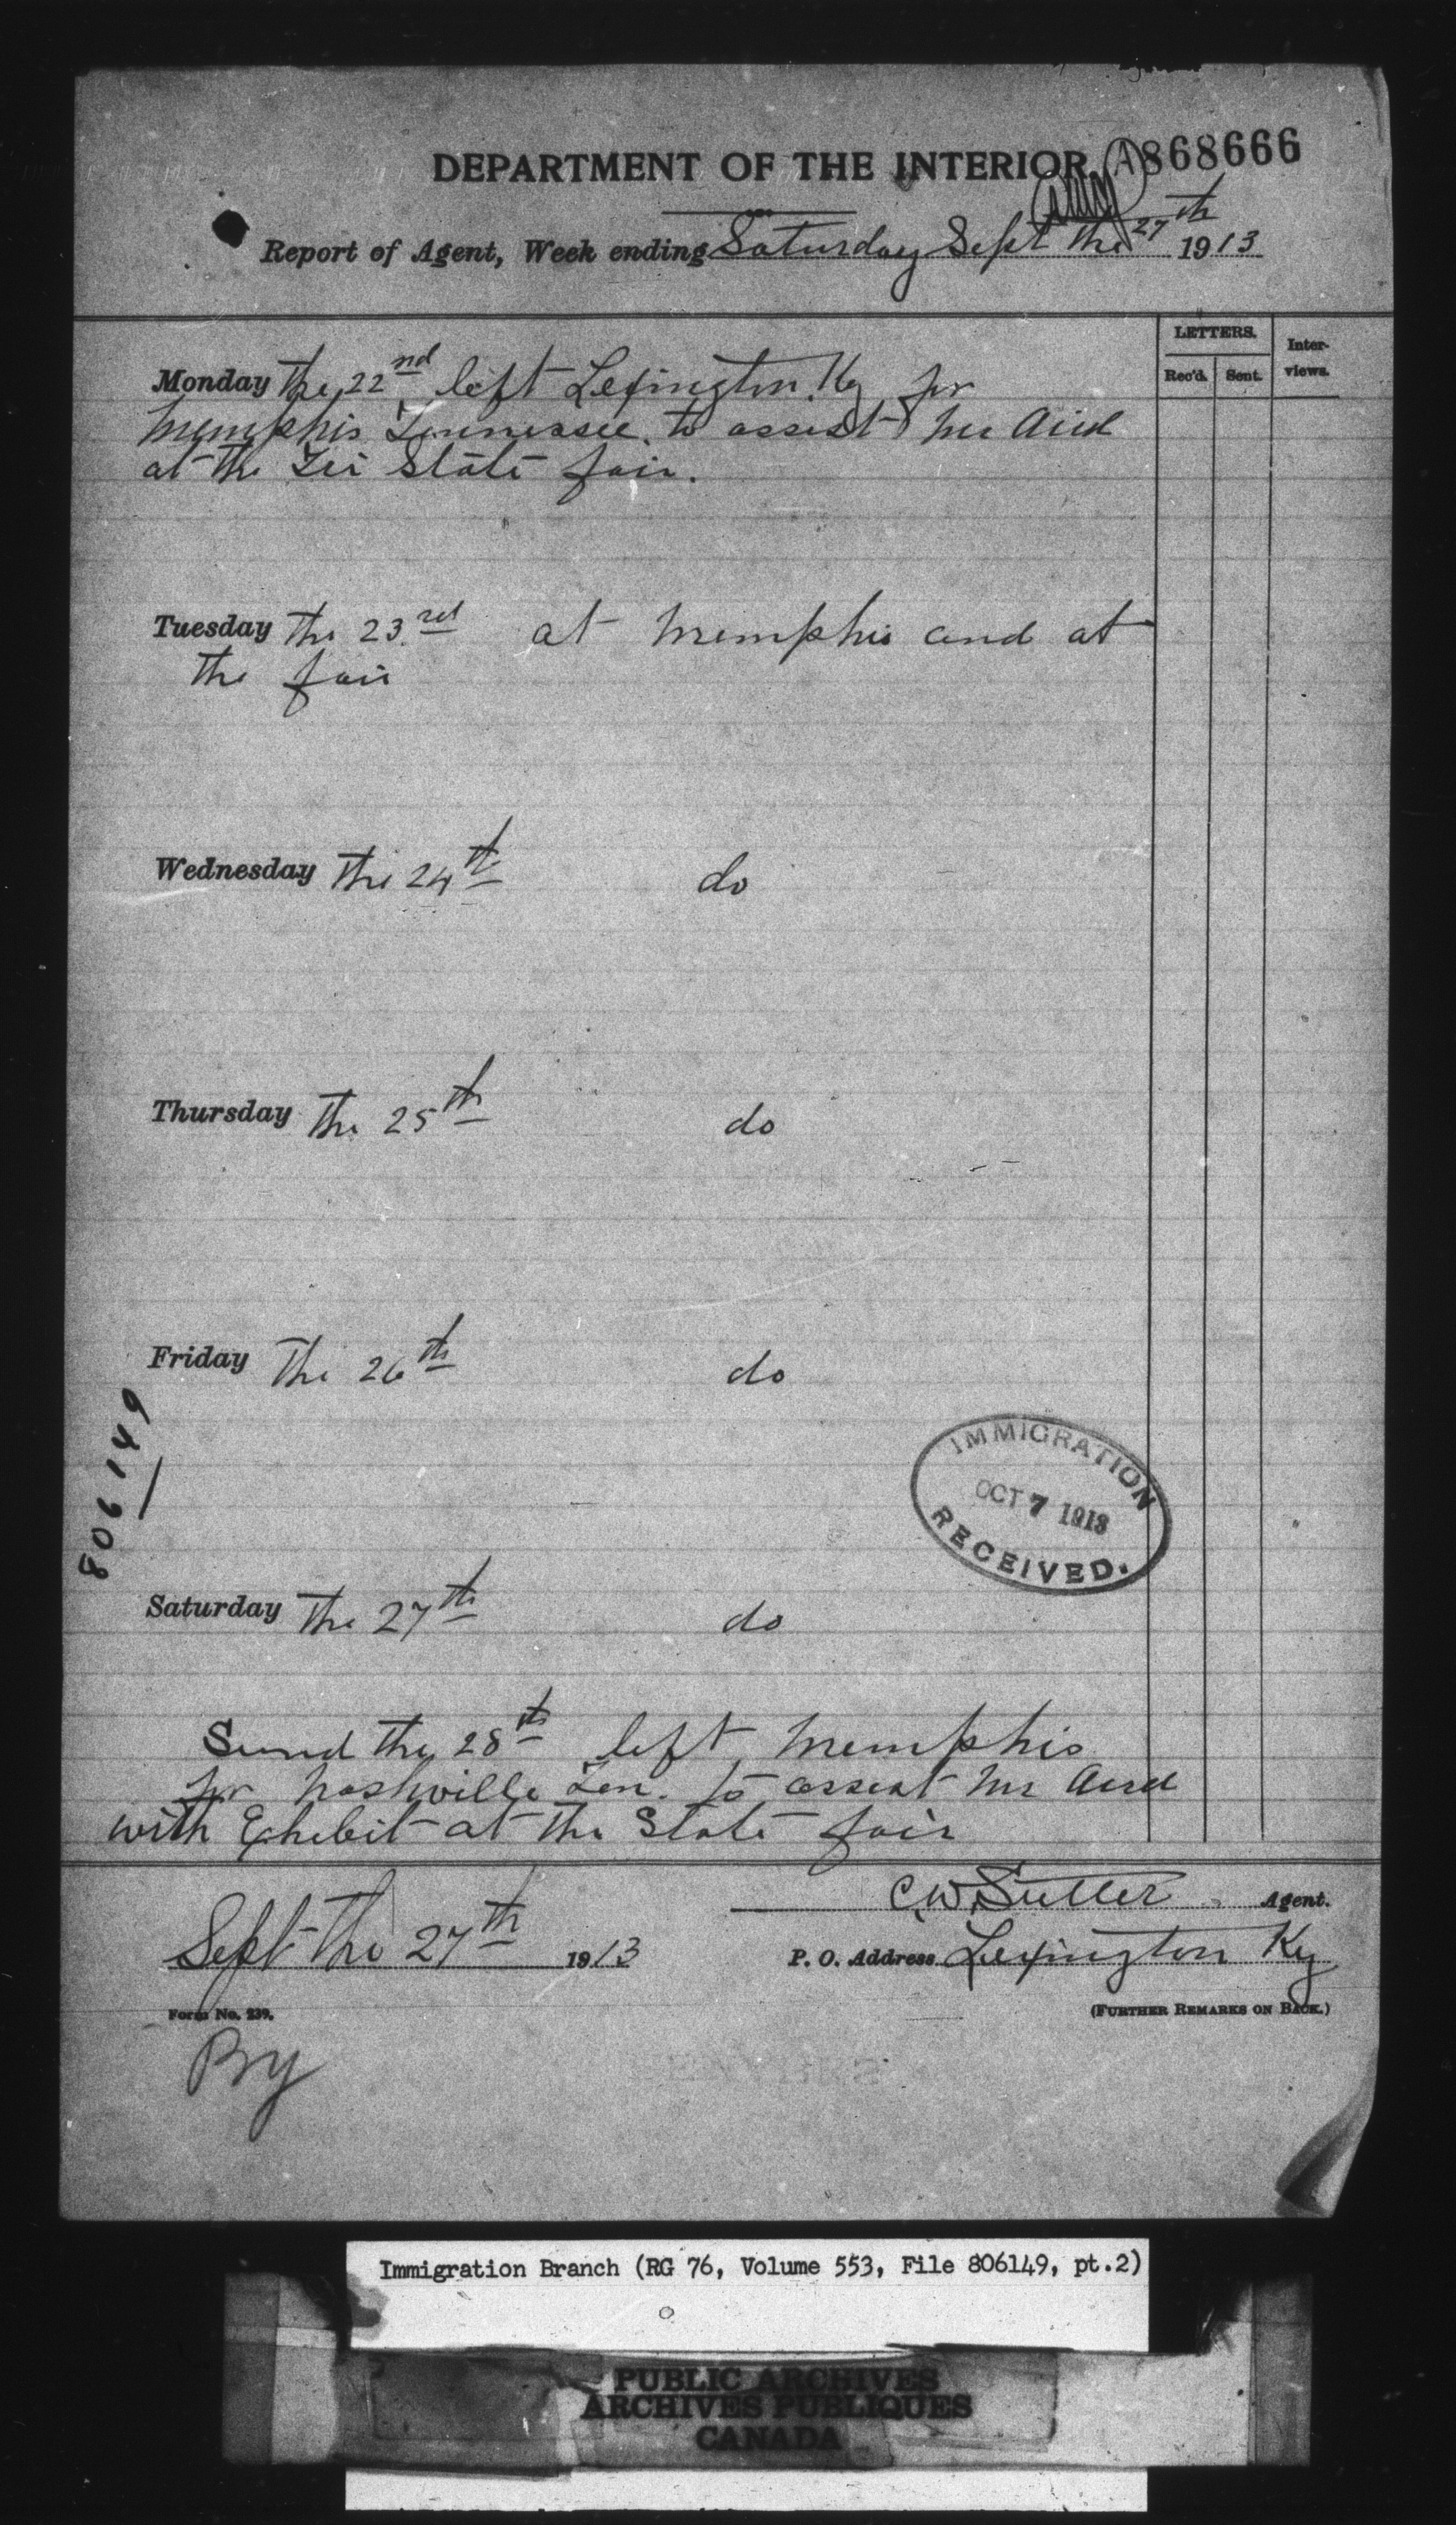 DEPARTMENT OF THE INTERIOR. A868666
Report of Agent, Week ending Saturday Sept the 27th 1913
LETTERS.
Inter-views.
Rec'd. Sent.
Monday the 22nd left Lexington, Ky for
Memphis Tennessee. to assist Mr Aird
at the Tri State fair.
Tuesday the 23rd at Memphis and at
the fair
Wednesday the 24th do
Thursday the 25th do
Friday the 26th do
806149
IMMIGRATION
OCT 7 1913
RECEIVED.
Saturday the 27th do
Sund the 28th left Memphis
for Nashville Ten. to assist Mr Aird
with Exhibit at the State fair
C.W. Sutter Agent.
Sept the 27th 1913
P. O. Address Lexington Ky
Form No. 239.
(FURTHER REMARKS ON BACK.)
By
Immigration Branch (RG 76, Volume 553, File 806149, pt.2)
PUBLIC ARCHIVES
ARCHIVES PUBLIQUES
CANADA